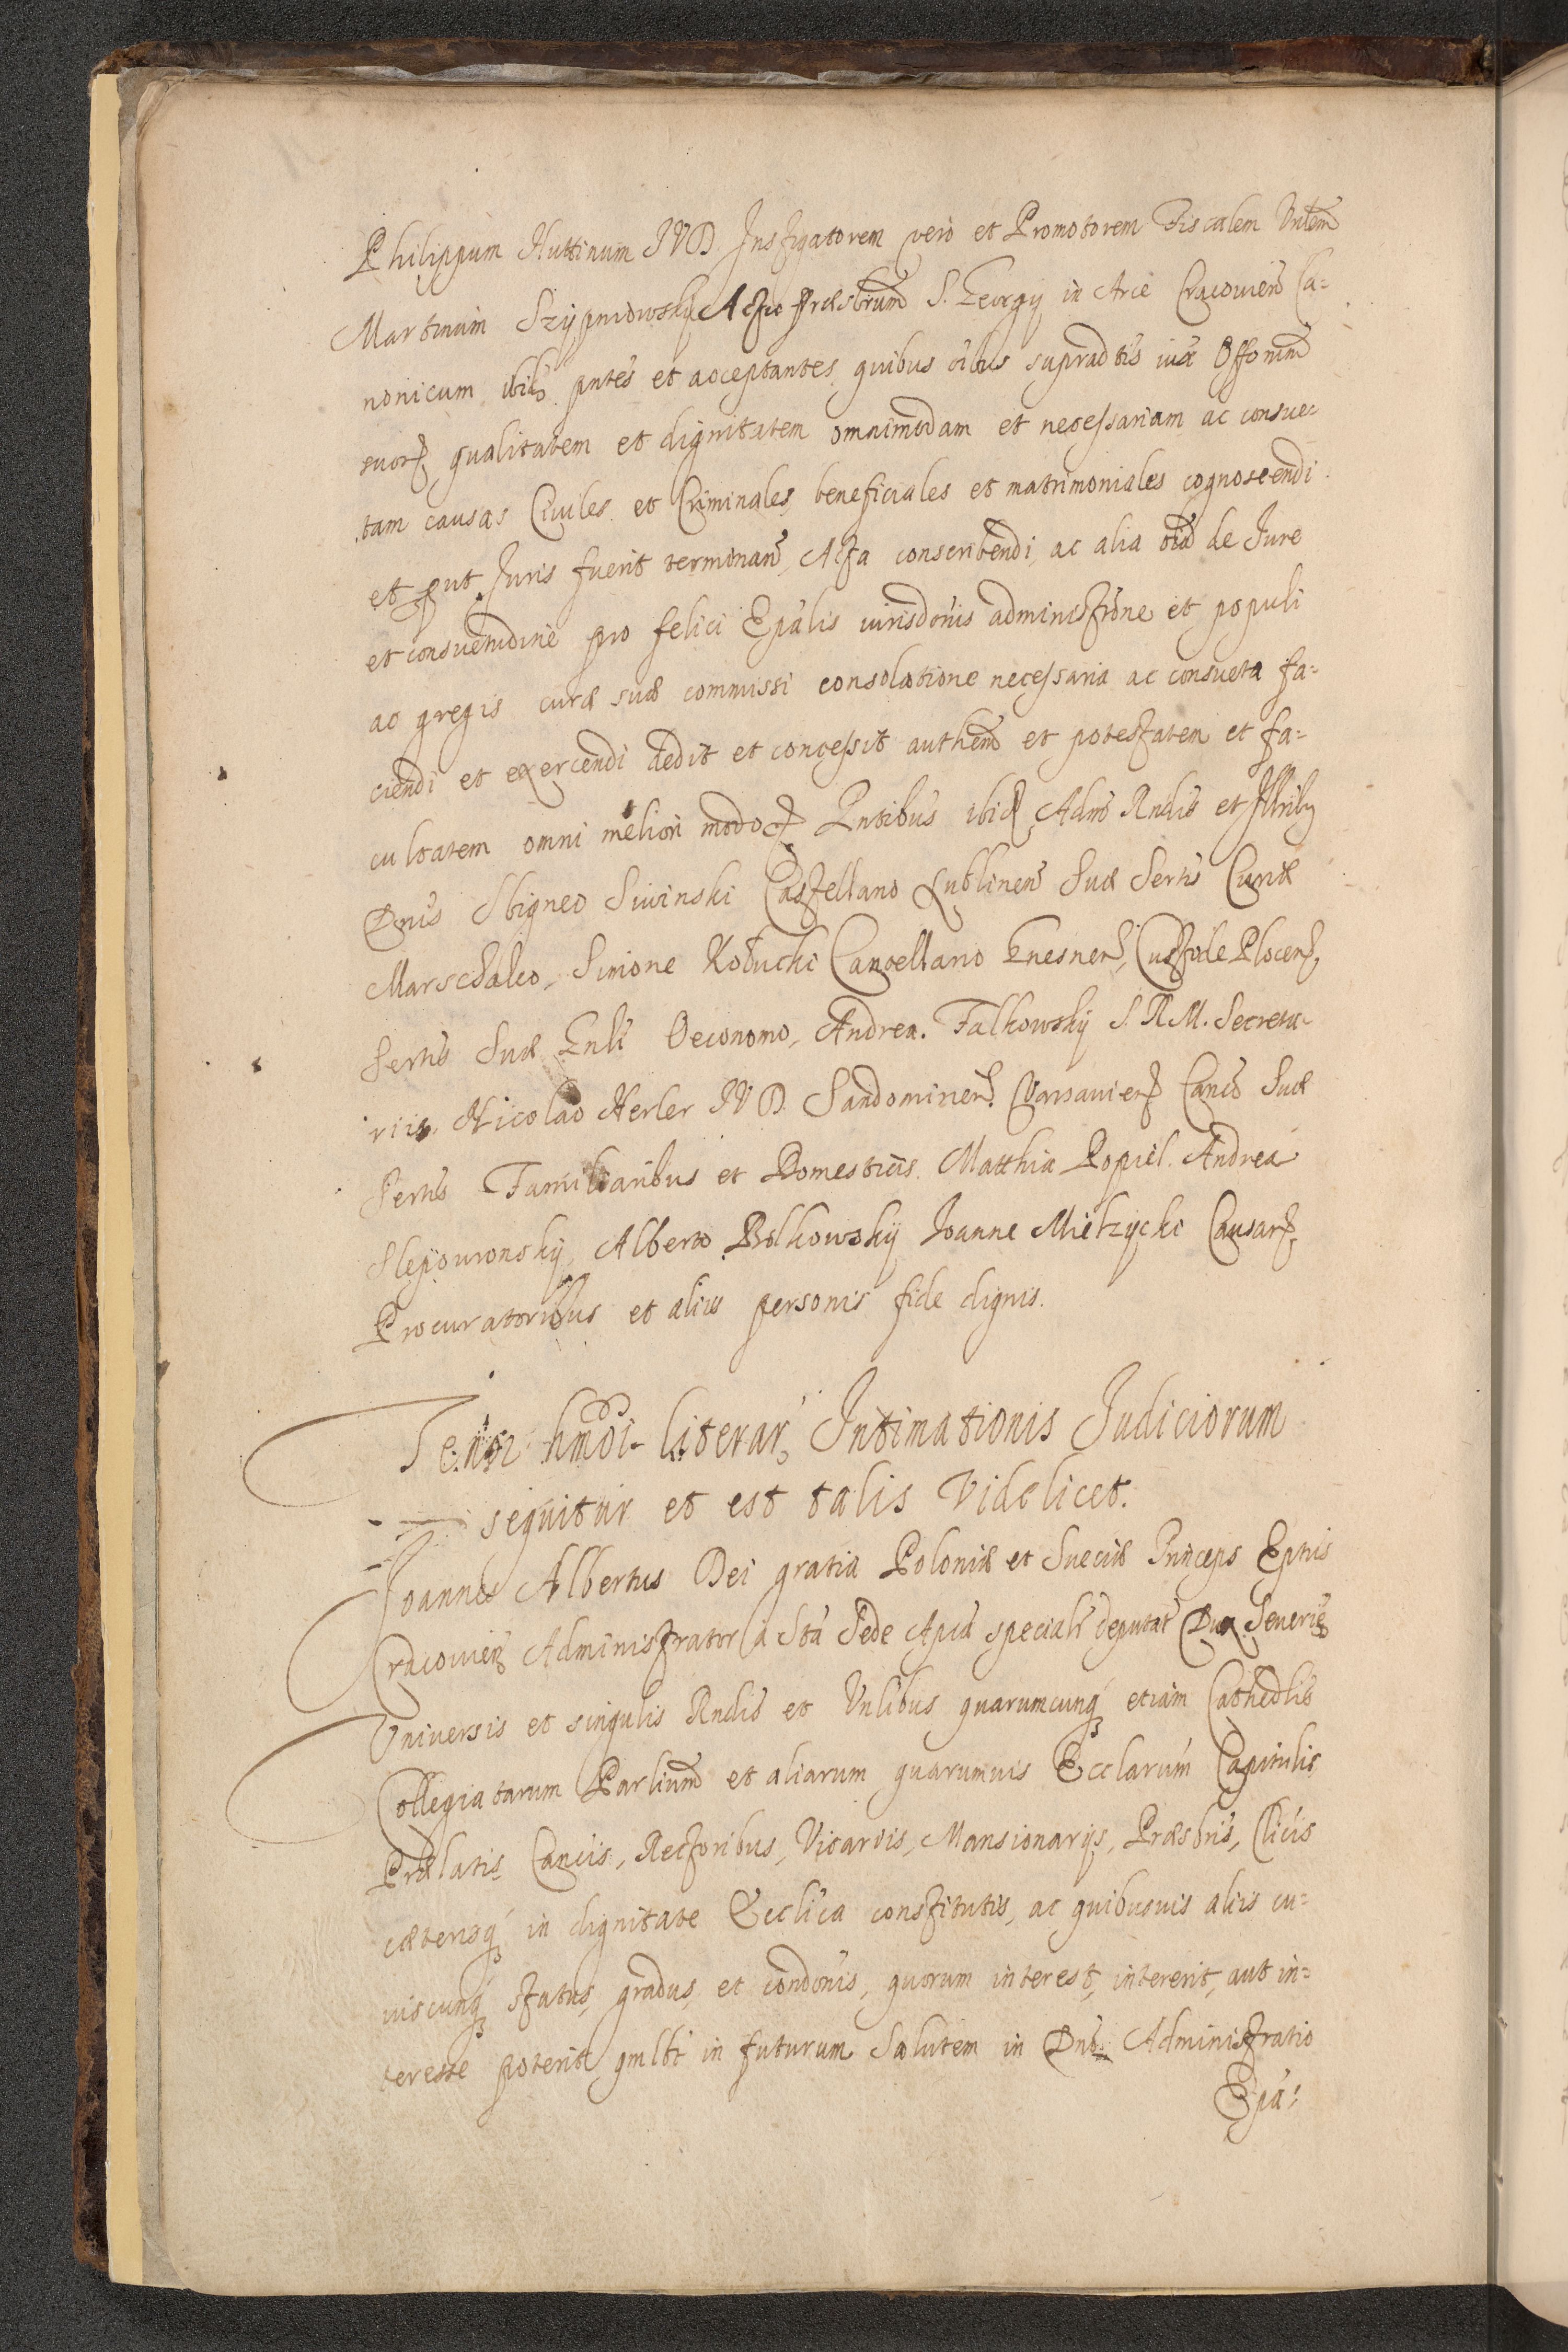 Philippum Huttinum IVD Instigatorem verò et Promotorem Fiscalem Vnlem
Martinum Szÿpniowskÿ S. Georgÿ in Arce Cracouien Ca-
nonicum ibid. pntes et acceptantes quibus oibus supradtis iuxa Officium
suorz qualitatem et dignitatem omnimodam et necessariam ac consue-
tam causas Ciuiles et Criminales, beneficiales et matrimoniales cognoscendi
et put Juris fuerit terminan̄, Acta conscribendi, ac alia oia de Jure
et consuetudine pro felici Epalis iurisdonis administrone et populi
ac gregis curæ suæ commissi consolatione necessaria ac consueta fa-
ciendi et exercendi dedit et concessit authem et potestatem et fa-
cultatem omni meliori modo Pntibus ibid Adm Rndis et Illribq
Dnis Sbigneo Siuinski Castellano Lublinen Suæ Sertis Curiæ
Marschalco, Simone Kołucki Cancellario Gnesnen, Custode Plocen,
Sertis Suæ Gnli Oeconomo, Andrea Falkowskÿ S.R.M. Secreta-
riis, Nicolao Herler IVD. Sandomirien. Varsauien Canco Suæ
Sertis Familiaribus et Domesticis. Matthia Popiel. Andrea
Slepowronskÿ, Alberto Bolkowskÿ Joanne Mietzycki Causarz
Procuratoribus et aliis personis fide dignis.
Tenor hmōi literar, Intimationis Judiciorum
sequitur et est talis Videlicet.
Joannes Albertus Dei gratia Poloniæ et Sueciæ Princeps Eptus
Cracouien Administrator à Sta Sede Apca specialr deputat Dux Seueriæ
Vniuersis et singulis Rndis et Vnlibus quarumcunq etiam Cathedlis
Collegiatarum Parlium et aliarum quarumuis Ecclarum Capitulis
Prælatis Cancis, Rectoribus, Vicarÿis, Mansionarÿs, Præsbris, Clicis
cæterisq in dignitate Ecclica constitutis, ac quibusuis aliis cu-
iuscunq status, gradus, et condonis, quorum interest, intererit, aut in-
teresse poterit qmlbt in futurum Salutem in Dno. Administratio
Epa-